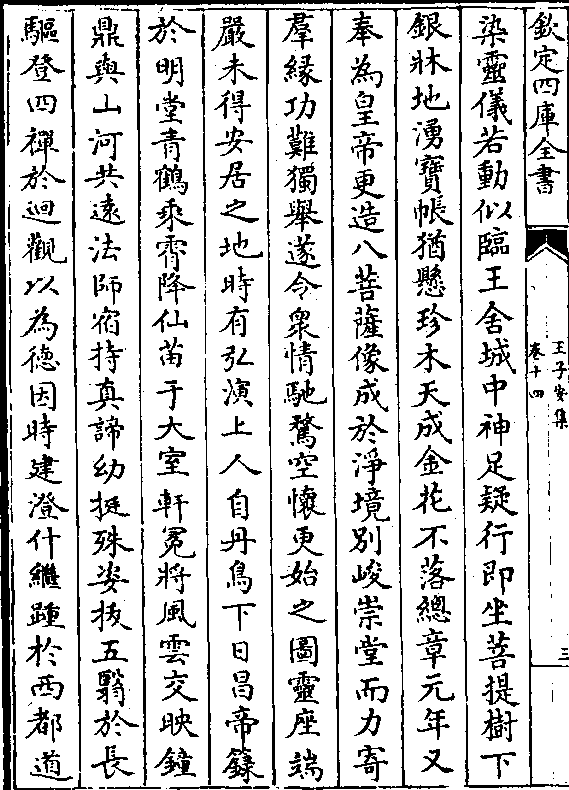 欽定四庫全書
王子安集
卷十四
三
染靈儀若動似臨王舍城中神足疑行即坐菩提樹下
銀牀地湧寶帳猶懸珍木天成金花不落總章元年又
奉為皇帝更造八菩薩像成於淨境別峻崇堂而力寄
羣緣功難獨舉遂令衆情馳騖空懷更始之圖靈座端
嚴未得安居之地時有弘演上人自丹鳥下日昌帝籙
於明堂青鶴乘霄降仙苗于大室軒冕將風雲交映鐘
鼎與山河共遠法師宿持真諦幼挺殊姿抜五翳於長
驅登四禪於迥觀以為德因時建澄什繼踵於西都道